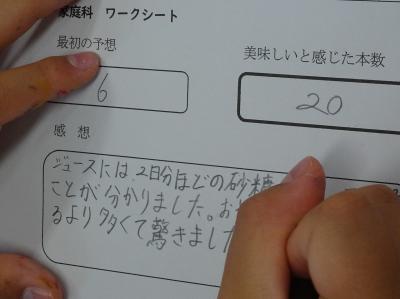 家庭科 ワークシート
最初の予想
美味しいと感じた本数
6
20
感 想
ジュースには、2日分ほどの砂糖
ことが分かりました。お
るより多くて驚きました